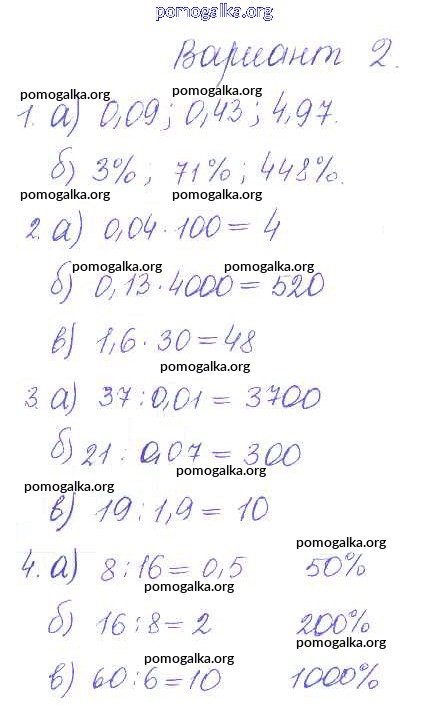 pomogalka.org
Вариант 2.
pomogalka.org pomogalka.org
1. а) 0,09; 0,43; 4,97.
б) 3%; 71%; 448%.
pomogalka.org pomogalka.org
2. а) 0,04 · 100 = 4
pomogalka.org pomogalka.org
б) 0,13 · 4000 = 520
в) 1,6 · 30 = 48
pomogalka.org
3. а) 37 : 0,01 = 3700
б) 21 : 0,07 = 300
pomogalka.org
pomogalka.org
в) 19 : 1,9 = 10
pomogalka.org
4. а) 8 : 16 = 0,5 50%
pomogalka.org
б) 16 : 8 = 2 200%
pomogalka.org
pomogalka.org
в) 60 : 6 = 10 1000%